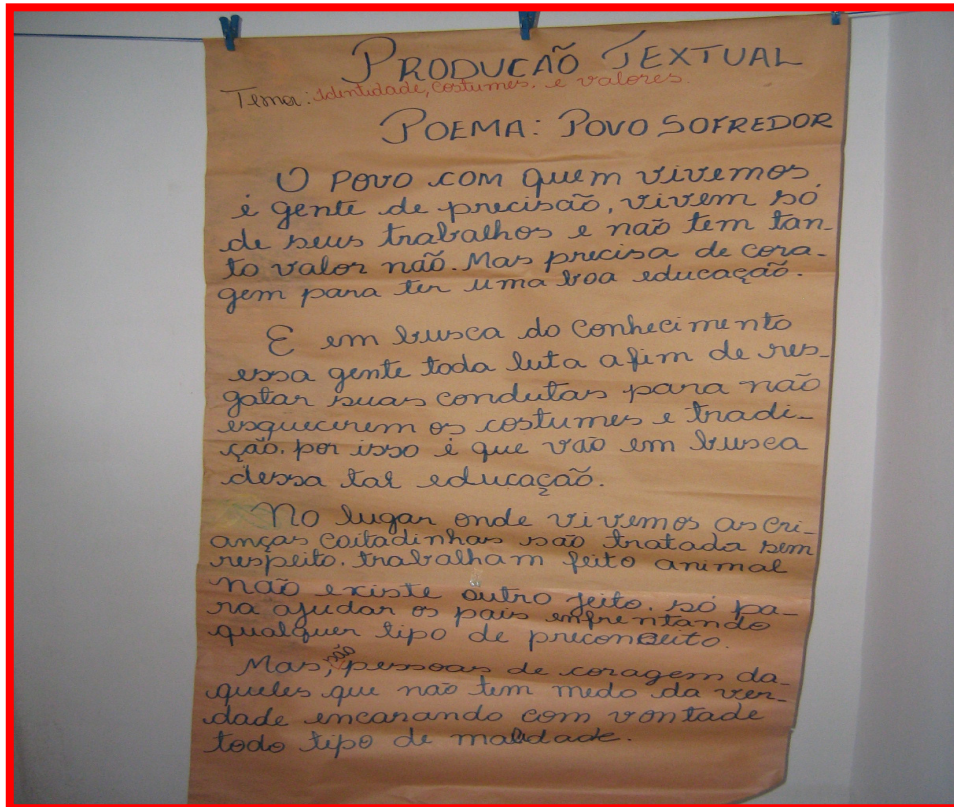 PRODUCÃO TEXTUAL
Tema: Identidade, costumes. e valores.
POEMA: POVO SOFREDOR
O povo com quem vivemos
é gente de precisão, vivem só
de seus trabalhos e não tem tan-
to valor não. Mas precisa de cora-
gem para ter uma boa educação.
E em busca do conhecimento
essa gente toda luta afim de res-
gatar suas condutas para não
esquecerem os costumes e tradi-
ção. por isso é que vão em busca
dessa tal educação.
No lugar onde vivemos as cri-
anças coitadinhas são tratada sem
respeito. trabalham feito animal
não existe outro jeito. só pa-
ra ajudar os pais enfrentando
qualquer tipo de preconceito.
Mas, são pessoas de coragem da-
queles que não tem medo da ver-
dade encarando com vontade
todo tipo de maldade.